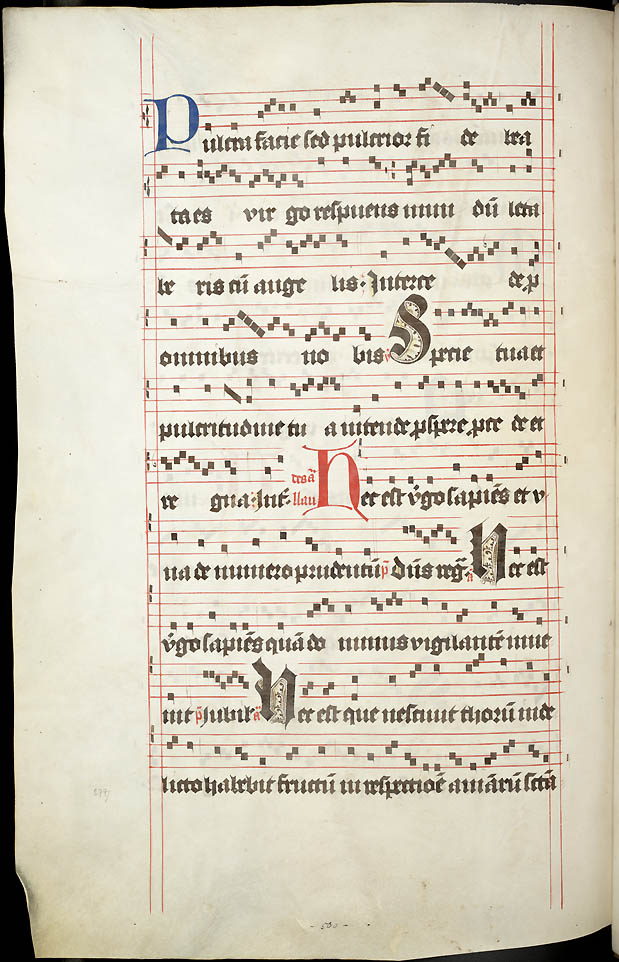 Pulcra facie sed pulcrior fi de bea
ta es vir go respuens mun dū leta
be ris cū ange lis. Interce de p
omnibus no bis Specie tua et
pulcritudine tu a intende pspere pce de et
re gna. Int. des a llau Hec est vgo sapiēs et v
na de numero prudentū p Dn̄s reg̃. a Hec est
vgo sapiēs quā do minus vigilantē inue
nit p Jubil a Hec est que nesciuit thorū in de
licto habebit fructū in respectioē aīarū sctā
- 500 -